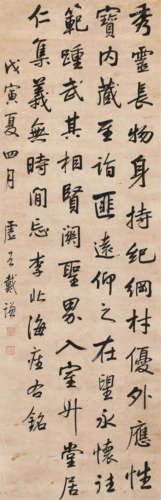 秀靈長物身持紀綱材優外應性
寶内藏至詣匪遠仰之在望永懷往
範踵武其相賢闕聖界入室升堂居
仁集義無時間忘李北海座右銘
戊寅夏四月 戴